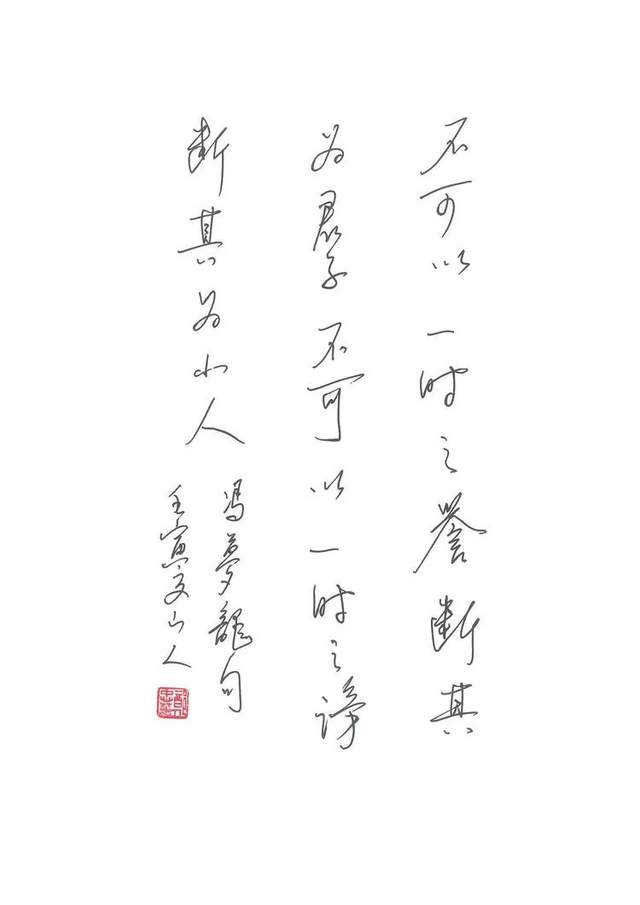 不可以一时之誉断其
为君子不可以一时之谤
断其为小人
冯梦龙句
壬寅文山人